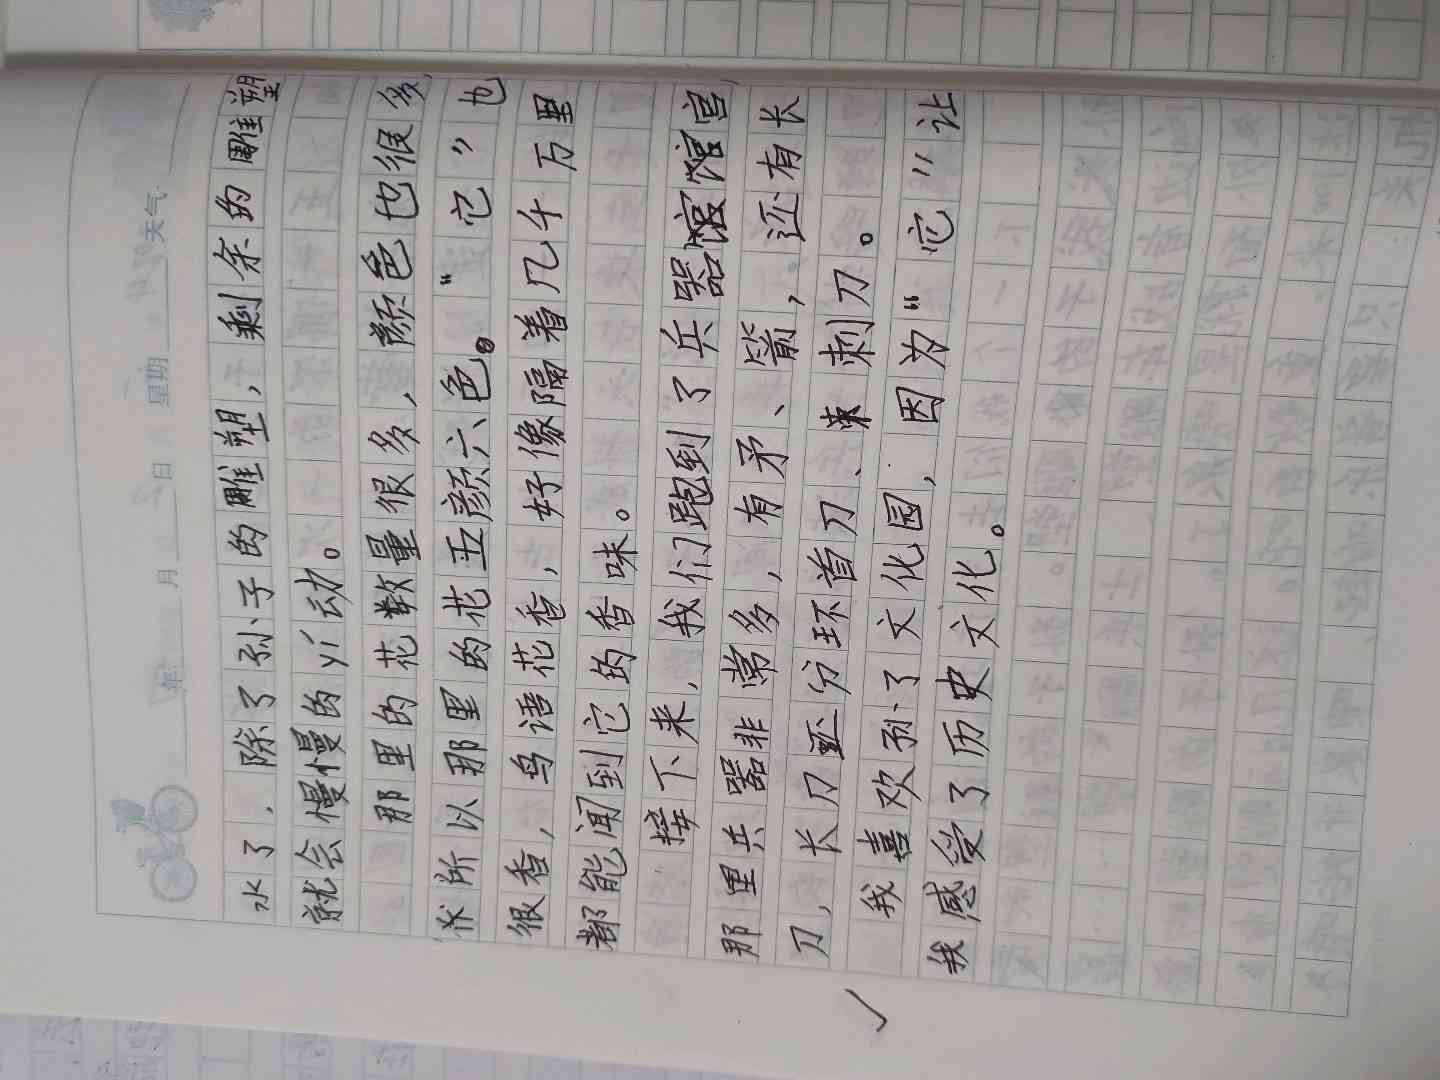 年 月 日 星期 天气
水了，除了孙子的雕塑，剩余的雕塑
就会慢慢的yí动。
那里的花数量很多，颜色也很多，
所以那里的花五颜六色。“它”也
很香，鸟语花香，好像隔着几千万里
都能闻到它的香味。
接下来，我们跑到了兵器馆馆宫，
那里兵器非常多，有矛、箭，还有长
刀，长刀还分环首刀、刺刀。
我喜欢孙子文化园，因为“它”让
我感受了历史文化。